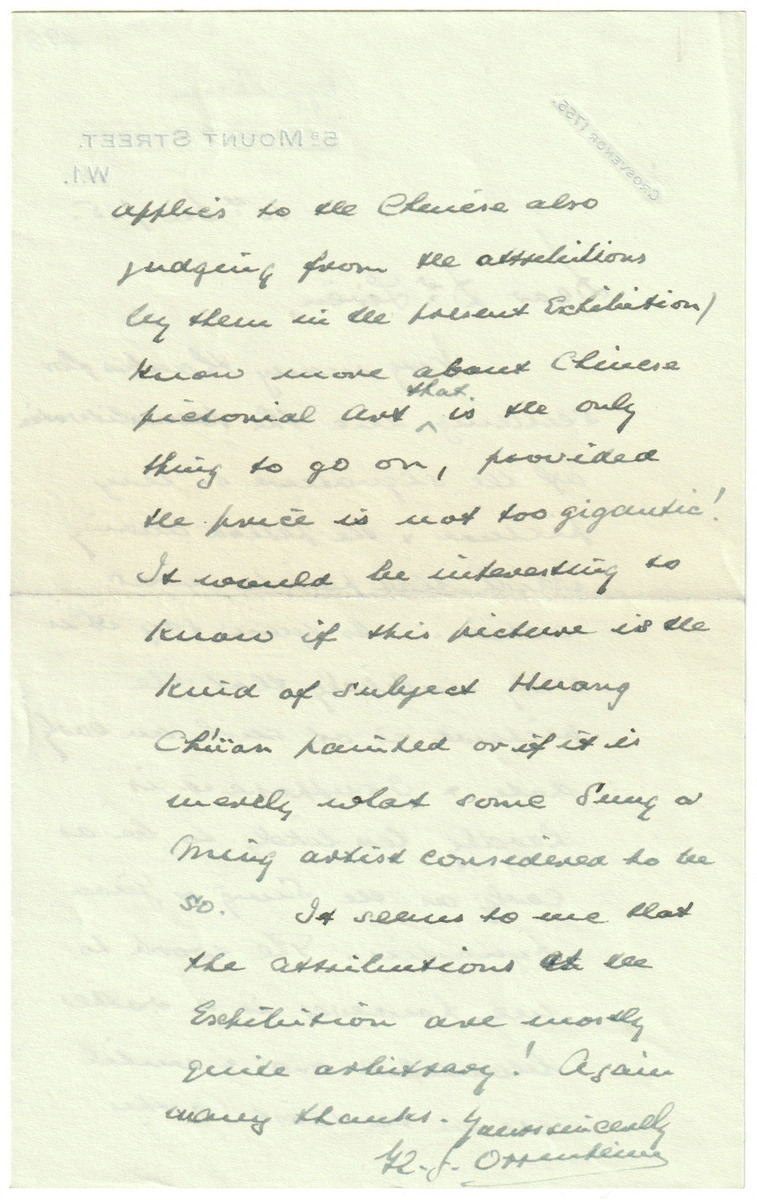 GROSVENOR 1755.
58 MOUNT STREET.
W.1.
applies to the Chinese also
judging from the attributions
by them in the present Exhibition)
know more about Chinese
pictorial art that is the only
thing to go on, provided
the price is not too gigantic!
It would be interesting to
know if this picture is the
kind of subject Huang
Ch'üan painted or if it is
merely what some Sung or
Ming artist considered to be
so. It seems to me that
the attributions at the
Exhibition are mostly
quite arbitrary! Again
many thanks. Yours sincerely
H. J. Oppenheim